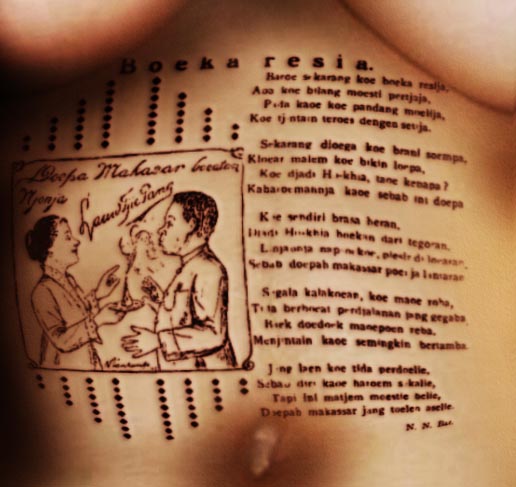 Boeka resia.
Baroe sekarang koe boeka resija,
Apa koe bilang moesti pertjaja,
kaoe koe pandang moelija,
Koe tjintain teroes dengen setija.
Sekarang djoega koe brani soempa,
Kloear malem koe bikin loepa,
Koe djadi Hokhia, tane kenapa?
Kabaroemannja kaoe sebab ini doepa
Koe sendiri brasa heran,
Djadi Hoakhia boekan dari tegoran,
Sebab doepah makassar
Segala kalaknean, koe maoe roba,
Tida berboeat perdjalanan jang gegaba,
doedoek manepoen reba,
Menjintain kaoe semingkin bertamba.
Jang laen koe tida perdoelie,
Sebab diri kaoe haroem sekalie,
Tapi ini matjem moestie belie,
Doepah makassar jang toelen aselie.
N. N. Bar.
Doepa Makasar boeatan
Njonja
Lauw Tjie Tang